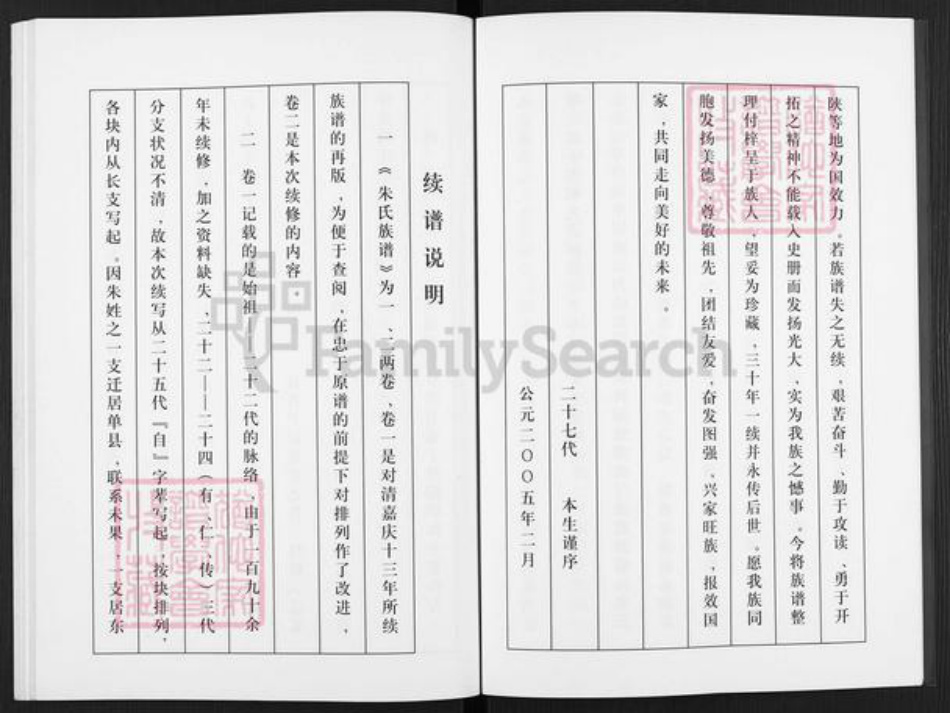 陕等地为国效力。若族谱失之无续，艰苦奋斗、勤于攻读、勇于开
拓之精神不能载入史册而发扬光大、实为我族之憾事。今将族谱整
理付梓呈于族人，望妥为珍藏，三十年一续并永传后世。愿我族同
胞发扬美德，尊敬祖先，团结友爱，奋发图强，兴家旺族，报效国
家，共同走向美好的未来。
二十七代　本生谨序
公元二〇〇五年二月
续谱说明
一 《朱氏族谱》为一、二两卷、卷一是对清嘉庆十三年所续
族谱的再版，为便于查阅，在忠于原谱的前提下对排列作了改进，
卷二是本次续修的内容。
二 卷一记载的是始祖——二十二代的脉络，由于一百九十余
年未续修，加之资料缺失，二十二——二十四（有、仁、传）三代
分支状况不清，故本次续写从二十五代『自』字辈写起，按块排列，
各块内从长支写起。因朱姓之一支迁居单县，联系未果，一支居东
FamilySearch